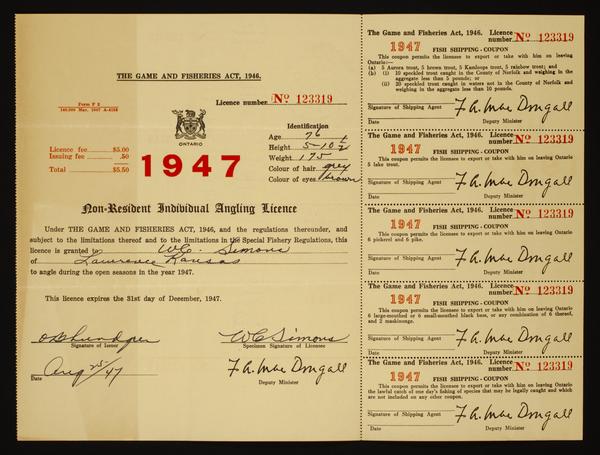 THE GAME AND FISHERIES ACT, 1946.
Form F 2
Licence number No 123319
ONTARIO
Licence fee $5.00
Issuing fee .50
Total $5.50
1947
Identification
Age 76
Height 5-10 1/2
Weight 175
Colour of hair grey
Colour of eyes brown
Non-Resident Individual Angling Licence
Under THE GAME AND FISHERIES ACT, 1946, and the regulations thereunder, and
subject to the limitations thereof and to the limitations in the Special Fishery Regulations, this
licence is granted to W.C. Simons
of Lawrence Kansas
to angle during the open seasons in the year 1947.
This licence expires the 31st day of December, 1947.
Signature of Issuer
W C Simons
Specimen Signature of Licensee
Aug 25/47
Date
F. A. Mac Dougall
Deputy Minister
The Game and Fisheries Act, 1946. Licence
number No 123319
1947 FISH SHIPPING - COUPON
This coupon permits the licensee to export or take with him on leaving
Ontario—
(a) 5 Aurora trout, 5 brown trout, 5 Kamloops trout, 5 rainbow trout; and
(b) (i) 10 speckled trout caught in the County of Norfolk and weighing in the
aggregate less than 5 pounds; or
(ii) 20 speckled trout caught in waters not in the County of Norfolk and
weighing in the aggregate less than 10 pounds.
Signature of Shipping Agent F. A. Mac Dougall
Date Deputy Minister
The Game and Fisheries Act, 1946. Licence
number No 123319
1947 FISH SHIPPING - COUPON
This coupon permits the licensee to export or take with him on leaving Ontario
5 lake trout.
Signature of Shipping Agent F. A. Mac Dougall
Date Deputy Minister
The Game and Fisheries Act, 1946. Licence
number No 123319
1947 FISH SHIPPING - COUPON
This coupon permits the licensee to export or take with him on leaving Ontario
6 pickerel and 6 pike.
Signature of Shipping Agent F. A. Mac Dougall
Date Deputy Minister
The Game and Fisheries Act, 1946. Licence
number No 123319
1947 FISH SHIPPING - COUPON
This coupon permits the licensee to export or take with him on leaving Ontario
6 large-mouthed or 6 small-mouthed black bass, or any combination of 6 thereof,
and 2 maskinonge.
Signature of Shipping Agent F. A. Mac Dougall
Date Deputy Minister
The Game and Fisheries Act, 1946. Licence
number No 123319
1947 FISH SHIPPING - COUPON
This coupon permits the licensee to export or take with him on leaving Ontario
the lawful catch of one day's fishing of species that may be legally caught and which
are not included on any other coupon.
Signature of Shipping Agent F. A. Mac Dougall
Date Deputy Minister